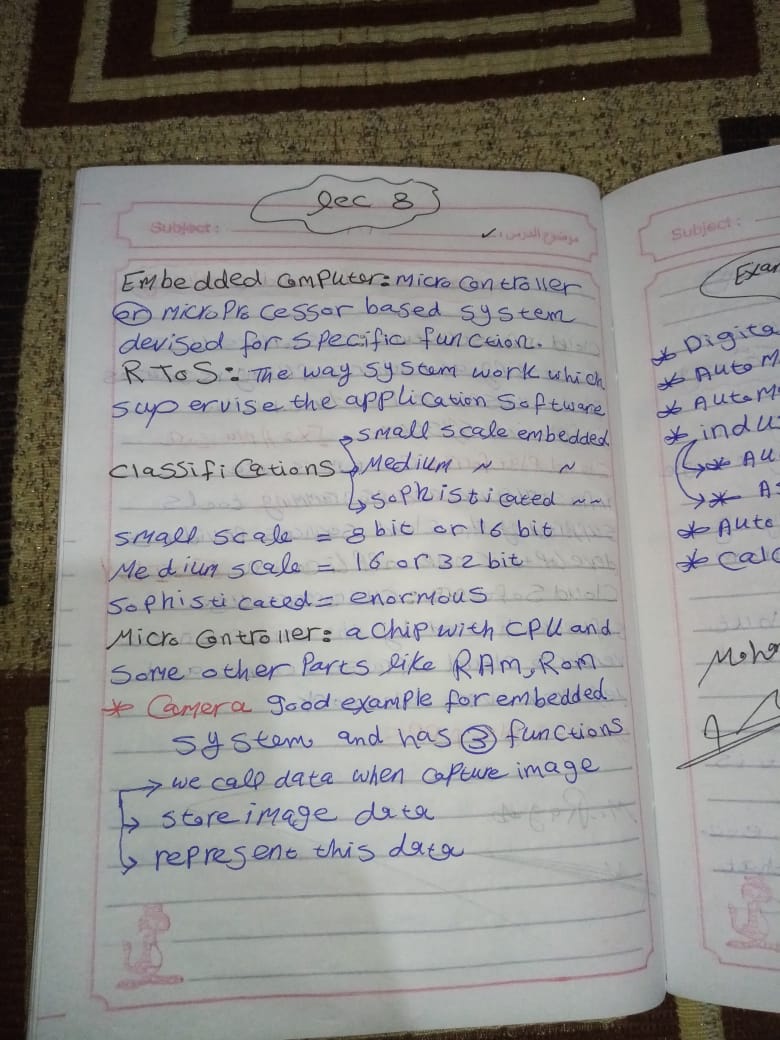 lec 8
Subject:
موضوع الدرس:
Embedded computer: micro controller
or microprocessor based system
devised for specific function.
RToS: The way system work which
supervise the application software
small scale embedded
classifications Medium ~ ~
sophisticated ~~
small scale = 8 bit or 16 bit
Medium scale = 16 or 32 bit
Sophisticated = enormous
Micro Controller: a chip with CPU and
some other parts like RAM, Rom
* Camera good example for embedded
system and has 3 functions
→ we call data when capture image
→ store image data
→ represent this data
Subject:
Exam
* Digita
* Auto M
* Auto M
* indu
* Au
* A
* Auto
* Calc